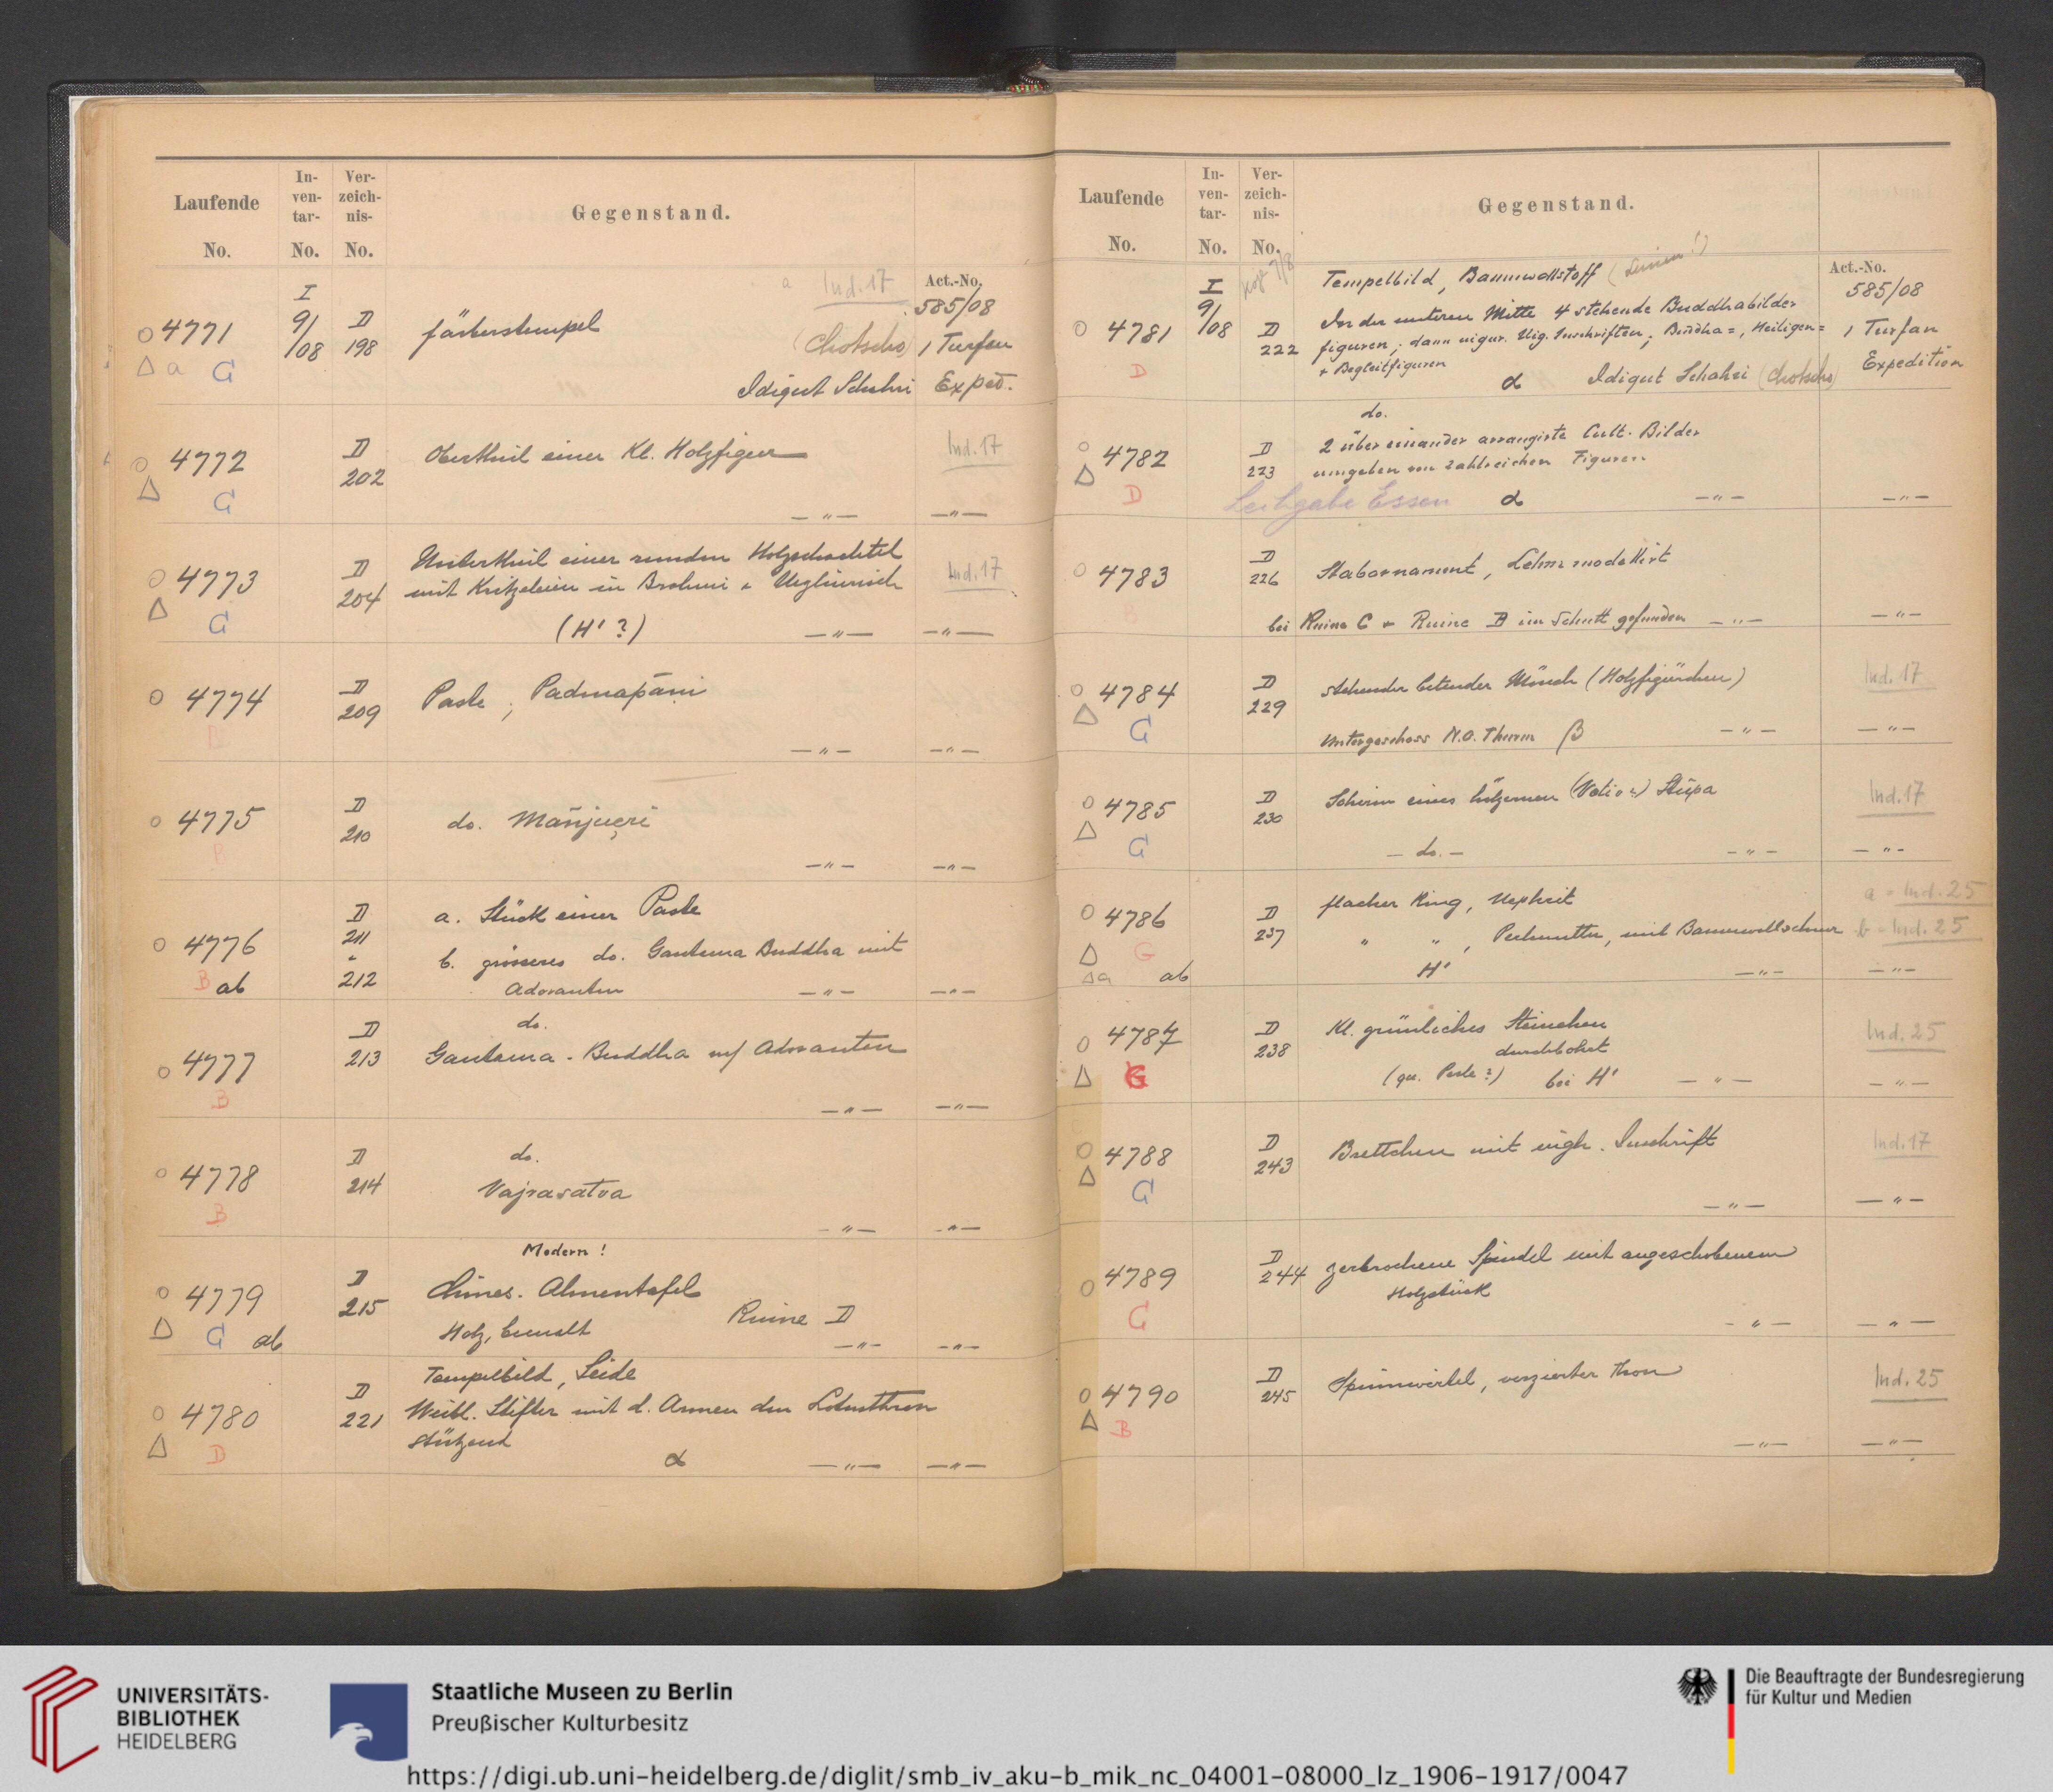 Laufende
No.
In-
ven-
tar-
No.
Ver-
zeich-
nis-
No.
Gegenstand.
a Ind. 17
Act.-No.
585/08
4771
I
9/08
D
198
färberstempel
(Chotscho)
1 Turfan
a G
Idigut Schahri
Exped.
4772
D
202
Obertheil einer Kl. Holzfigur
Ind. 17
G
— „ —
— „ —
4773
D
204
Untertheil einer runden Holzschachtel
mit Kritzeleien in Brahmi + Uighurisch
Ind. 17
G
(H' ?)
— „ —
— „ —
4774
D
209
Paste, Padmapāṇi
B
— „ —
— „ —
4775
D
210
do. Mañjuçri
B
— „ —
— „ —
4776
D
211
212
a. Stück einer Paste
b. grösseres do. Gautama Buddha mit
Adoranten
B ab
— „ —
— „ —
4777
D
213
do.
Gautama-Buddha m/ Adoranten
B
— „ —
— „ —
4778
D
214
do.
Vajrasatva
B
— „ —
— „ —
Modern!
4779
D
215
Chines. Ahnentafel
Holz, bemalt
Ruine D
G ab
— „ —
— „ —
4780
D
221
Tempelbild, Seide
Weibl. Stifter mit d. Armen den Lotusthron
stützend
D
α
— „ —
— „ —
Laufende
No.
In-
ven-
tar-
No.
Ver-
zeich-
nis-
No.
Gegenstand.
Act.-No.
585/08
4781
I
9/08
D
222
Tempelbild, Baumwollstoff (Leinen!)
In der unteren Mitte 4 stehende Buddhabilder
figuren; dann uigur. Uig. Inschriften, Buddha=, Heiligen=
+ Begleitfiguren
1 Turfan
Expedition
D
α
Idigut Schahri (Chotscho)
4782
D
223
do.
2 über einander arrangirte Cult-Bilder
umgeben von zahlreichen Figuren
D
Leihgabe Essen
α
— „ —
— „ —
4783
D
226
Stabornament, Lehm modellirt
B
bei Ruine C + Ruine B im Schutt gefunden
— „ —
— „ —
4784
D
229
stehender betender Mönch (Holzfigürchen)
Ind. 17
G
Untergeschoss N.O. Thurm β
— „ —
— „ —
4785
D
230
Schirm eines hölzernen (Votiv?) Stūpa
Ind. 17
G
— do. —
— „ —
— „ —
4786
D
237
flacher Ring, Nephrit
„ „ , Perlmutter, mit Baumwollschnur
a = Ind. 25
b = Ind. 25
G
a ab
H'
— „ —
— „ —
4787
D
238
Kl. grünliches Steinchen
durchbohrt
Ind. 25
G
(qu. Perle?) bei H'
— „ —
— „ —
4788
D
243
Brettchen mit uigh. Inschrift
Ind. 17
G
— „ —
— „ —
4789
D
244
zerbrochene Spindel mit angeschobenem
Holzstück
G
— „ —
— „ —
4790
D
245
Spinnwirtel, verzierter Thon
Ind. 25
B
— „ —
— „ —
UNIVERSITÄTS-
BIBLIOTHEK
HEIDELBERG
Staatliche Museen zu Berlin
Preußischer Kulturbesitz
Die Beauftragte der Bundesregierung
für Kultur und Medien
https://digi.ub.uni-heidelberg.de/diglit/smb_iv_aku-b_mik_nc_04001-08000_lz_1906-1917/0047